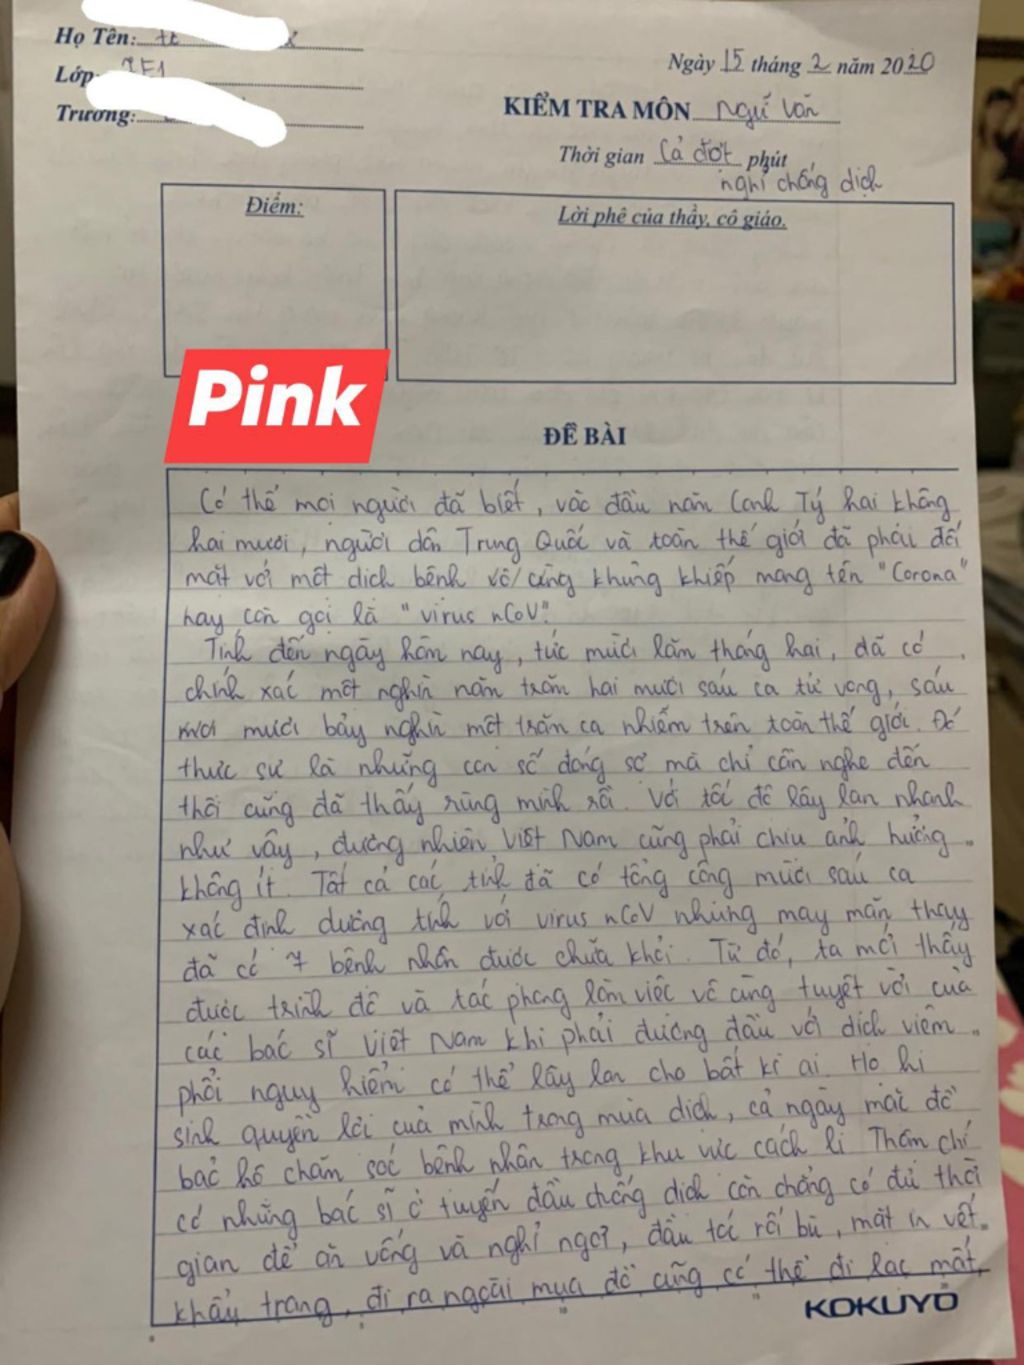 Họ Tên:
Ngày 15 tháng 2 năm 2020
Lớp: 7E1
KIỂM TRA MÔN Ngữ Văn
Trường:
Thời gian Cả đợt phút
nghỉ chống dịch
Điểm:
Lời phê của thầy, cô giáo.
Pink
ĐỀ BÀI
Có thể mọi người đã biết, vào đầu năm Canh Tý hai không
hai mươi, người dân Trung Quốc và toàn thế giới đã phải đối
mặt với một dịch bệnh vô cùng khủng khiếp mang tên "Corona"
hay còn gọi là "virus nCoV".
Tính đến ngày hôm nay, tức mười lăm tháng hai, đã có
chính xác một nghìn năm trăm hai mươi sáu ca tử vong, sáu
mươi bảy nghìn một trăm ca nhiễm trên toàn thế giới. Đó
thực sự là những con số đáng sợ mà chỉ cần nghe đến
thôi cũng đã thấy rùng mình rồi. Với tốc độ lây lan nhanh
như vậy, đương nhiên Việt Nam cũng phải chịu ảnh hưởng
không ít. Tất cả các tỉnh đã có tổng cộng mười sáu ca
xác định dương tính với virus nCoV nhưng may mắn thay
đã có 7 bệnh nhân được chữa khỏi. Từ đó, ta mới thấy
được trình độ và tác phong làm việc vô cùng tuyệt vời của
các bác sĩ Việt Nam khi phải đương đầu với dịch viêm
phổi nguy hiểm có thể lây lan cho bất kì ai. Họ hi
sinh quyền lợi của mình trong mùa dịch, cả ngày mặc đồ
bảo hộ chăm sóc bệnh nhân trong khu vực cách li. Thậm chí
có những bác sĩ ở tuyến đầu chống dịch còn chẳng có đủ thời
gian để ăn uống và nghỉ ngơi, đầu tóc rối bù, mặt in vết
khẩu trang, đi ra ngoài mua đồ cũng có thể đi lạc mất,
KOKUYO